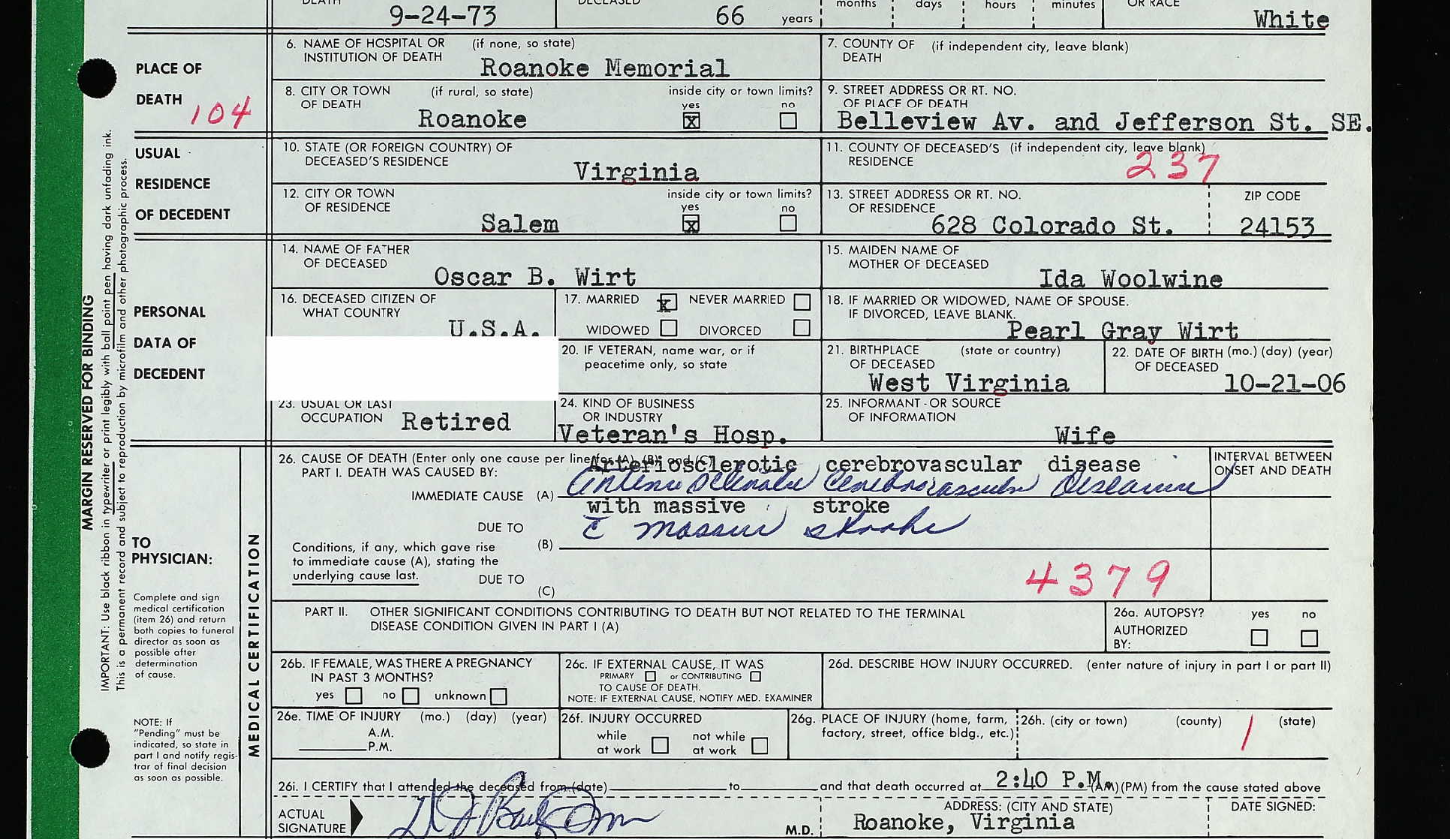 DEATH 9-24-73 DECEASED 66 years months days hours minutes OR RACE White
PLACE OF DEATH 104
6. NAME OF HOSPITAL OR (if none, so state)
INSTITUTION OF DEATH Roanoke Memorial
7. COUNTY OF (if independent city, leave blank)
DEATH
8. CITY OR TOWN (if rural, so state) inside city or town limits?
OF DEATH Roanoke yes x no
9. STREET ADDRESS OR RT. NO.
OF PLACE OF DEATH
Belleview Av. and Jefferson St. SE.
USUAL RESIDENCE OF DECEDENT
10. STATE (OR FOREIGN COUNTRY) OF
DECEASED'S RESIDENCE Virginia
11. COUNTY OF DECEASED'S (if independent city, leave blank)
RESIDENCE 237
12. CITY OR TOWN inside city or town limits?
OF RESIDENCE Salem yes x no
13. STREET ADDRESS OR RT. NO. ZIP CODE
OF RESIDENCE 628 Colorado St. 24153
PERSONAL DATA OF DECEDENT
14. NAME OF FATHER
OF DECEASED Oscar B. Wirt
15. MAIDEN NAME OF
MOTHER OF DECEASED Ida Woolwine
16. DECEASED CITIZEN OF
WHAT COUNTRY U.S.A.
17. MARRIED x NEVER MARRIED
WIDOWED DIVORCED
18. IF MARRIED OR WIDOWED, NAME OF SPOUSE.
IF DIVORCED, LEAVE BLANK.
Pearl Gray Wirt
20. IF VETERAN, name war, or if
peacetime only, so state
21. BIRTHPLACE (state or country)
OF DECEASED West Virginia
22. DATE OF BIRTH (mo.) (day) (year)
OF DECEASED 10-21-06
23. USUAL OR LAST
OCCUPATION Retired
24. KIND OF BUSINESS
OR INDUSTRY
Veteran's Hosp.
25. INFORMANT - OR SOURCE
OF INFORMATION Wife
MARGIN RESERVED FOR BINDING
IMPORTANT: Use black ribbon in typewriter or print legibly with ball point pen having dark unfading ink.
This is a permanent record and subject to reproduction by microfilm and other photographic process.
TO PHYSICIAN:
Complete and sign
medical certification
(item 26) and return
both copies to funeral
director as soon as
possible after
determination
of cause.
NOTE: If
"Pending" must be
indicated, so state in
part I and notify regis-
trar of final decision
as soon as possible.
MEDICAL CERTIFICATION
26. CAUSE OF DEATH (Enter only one cause per line for (A), (B), and (C)) INTERVAL BETWEEN
PART I. DEATH WAS CAUSED BY: Arteriosclerotic cerebrovascular disease ONSET AND DEATH
IMMEDIATE CAUSE (A) cerebrovascular disease
with massive stroke
DUE TO massive stroke
Conditions, if any, which gave rise (B)
to immediate cause (A), stating the
underlying cause last. DUE TO 4379
(C)
PART II. OTHER SIGNIFICANT CONDITIONS CONTRIBUTING TO DEATH BUT NOT RELATED TO THE TERMINAL
DISEASE CONDITION GIVEN IN PART I (A)
26a. AUTOPSY? yes no
AUTHORIZED
BY:
26b. IF FEMALE, WAS THERE A PREGNANCY
IN PAST 3 MONTHS?
yes no unknown
26c. IF EXTERNAL CAUSE, IT WAS
PRIMARY or CONTRIBUTING
TO CAUSE OF DEATH.
NOTE: IF EXTERNAL CAUSE, NOTIFY MED. EXAMINER
26d. DESCRIBE HOW INJURY OCCURRED. (enter nature of injury in part I or part II)
26e. TIME OF INJURY (mo.) (day) (year)
A.M.
P.M.
26f. INJURY OCCURRED
while not while
at work at work
26g. PLACE OF INJURY (home, farm,
factory, street, office bldg., etc.)
26h. (city or town) (county) (state)
26i. I CERTIFY that I attended the deceased from (date) to and that death occurred at 2:40 P.M. (AM)(PM) from the cause stated above
ACTUAL
SIGNATURE M.D.
ADDRESS: (CITY AND STATE) DATE SIGNED:
Roanoke, Virginia